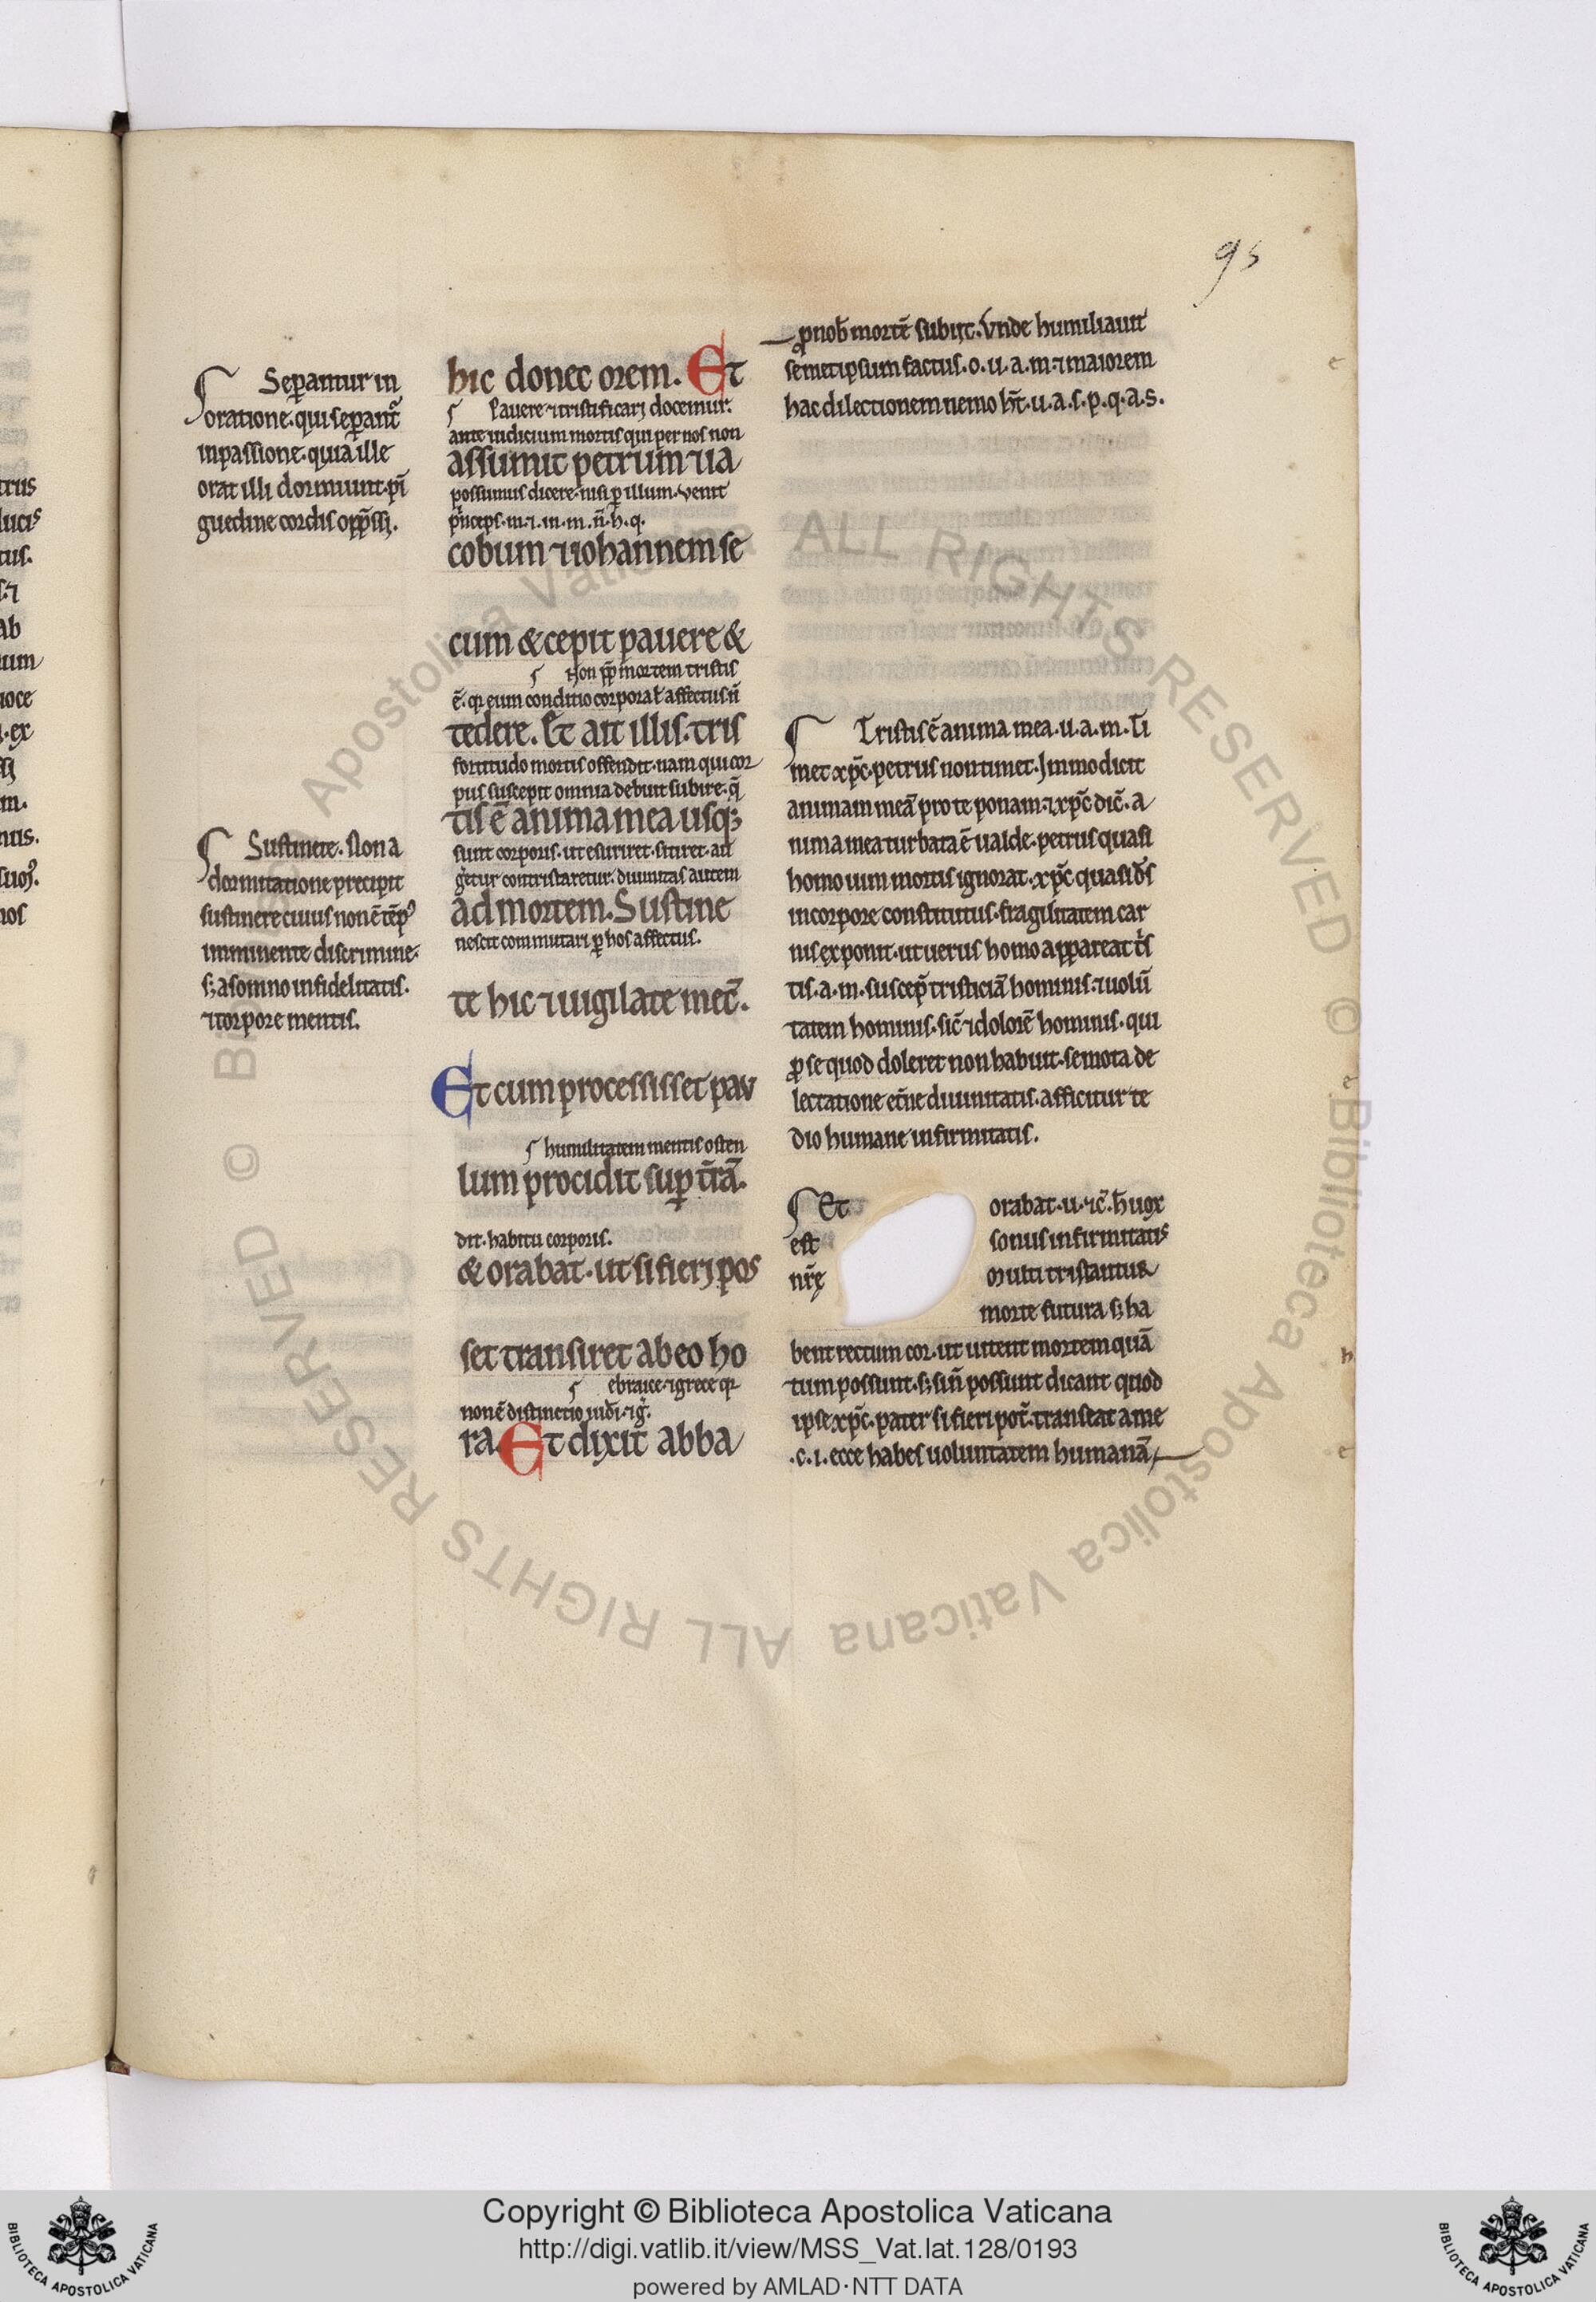 95
Sep̱antur in
oratione·qui sep̱ant᷑
in passione·quia ille
orat illi dormiunt·pi
guedine cordis opp̄ssi.
Sustinete. Non a
dormitatione precipit
sustinere cuius non ē tēpꝰ
imminente discrimine·
sꝫ a somno infidelitatis·
⁊ torpore mentis.
hic donec orem. Et
Pauere ⁊ tristificari docemur.
ante iudicium mortis qui per nos non
assumit petrum ⁊ ia
possumus dicere·nisi ꝑ illum·venit
pͥnceps·m·⁊·in·m·n̄·h·q·
cobum ⁊ iohannem se
cum & cepit pauere &
Non ꝓp̄ mortem tristis
ē·qꝛ eum conditio corporal̓ affectus n̄
tedere. Et ait illis·tris
fortitudo mortis offendit·nam qui cor
pus suscepit omnia debuit subire·q̄
tis ē anima mea usqꝫ
sunt corporis·ut esuriret·sitiret·an
getur contristaretur·diuinitas autem
ad mortem. Sustine
nescit commutari ꝑ hos affectus.
te hic ⁊ uigilate mec̄.
Et cum processisset pau
humilitatem mentis osten
lum procidit suꝑ tr̄ā.
dit·habitu corporis.
& orabat·ut si fieri pos
set transiret ab eo ho
ebraice·⁊ grece qꝛ
non ē distinctio iud̄i·⁊ gͥ.
ra Et dixit abba
ꝓ nob̄ mortē subiit. Vnde humiliauit
semetipsum factus·o·u·a·m·⁊ maiorem
hac dilectionem nemo h̄t·u·a·s·p·q·a·s·
Tristis ē anima mea·u·a·m·Ti
met xp̄c·petrus non timet·Immo dicit
animam meā pro te ponam·⁊ xp̄c dic̄·a
nima mea turbata ē ualde·petrus quasi
homo uim mortis ignorat·xp̄c quasi d̄s
in corpore constitutus·fragilitatem car
nis exponit·ut uerus homo appareat t̓s
tis·a·m·suscep̄ tristiciā hominis·⁊ uolū
tatem hominis·sic̄ ⁊ dolorē hominis·qui
ꝓ se quod doleret non habuit·semota de
lectatione et̄ne diuinitatis·afficitur te
dio humane infirmitatis.
Et orabat·u·⁊c̄·h̄ uox
est sonus infirmitatis
nr̄ę Multi tristantur
morte futura sꝫ ha
bent rectum cor·ut uitent mortem quā
tum possunt·sꝫ si n̄ possunt dicant quod
ipse xp̄c·pater si fieri pot̄·transeat a me
·c·i·ecce habes uoluntatem humanā
Copyright © Biblioteca Apostolica Vaticana
http://digi.vatlib.it/view/MSS_Vat.lat.128/0193
powered by AMLAD·NTT DATA
BIBLIOTECA APOSTOLICA VATICANA
BIBLIOTECA APOSTOLICA VATICANA
© Biblioteca Apostolica Vaticana ALL RIGHTS RESERVED
© Biblioteca Apostolica Vaticana ALL RIGHTS RESERVED